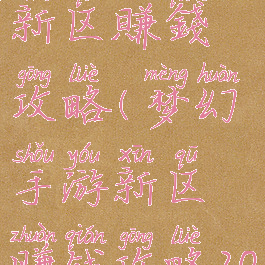 新区賺錢
gōng lüè mèng huàn
攻略(梦幻
shǒu yóu xīn qū
手游新区
zhuàn qián gōng lüè
賺錢攻略 20